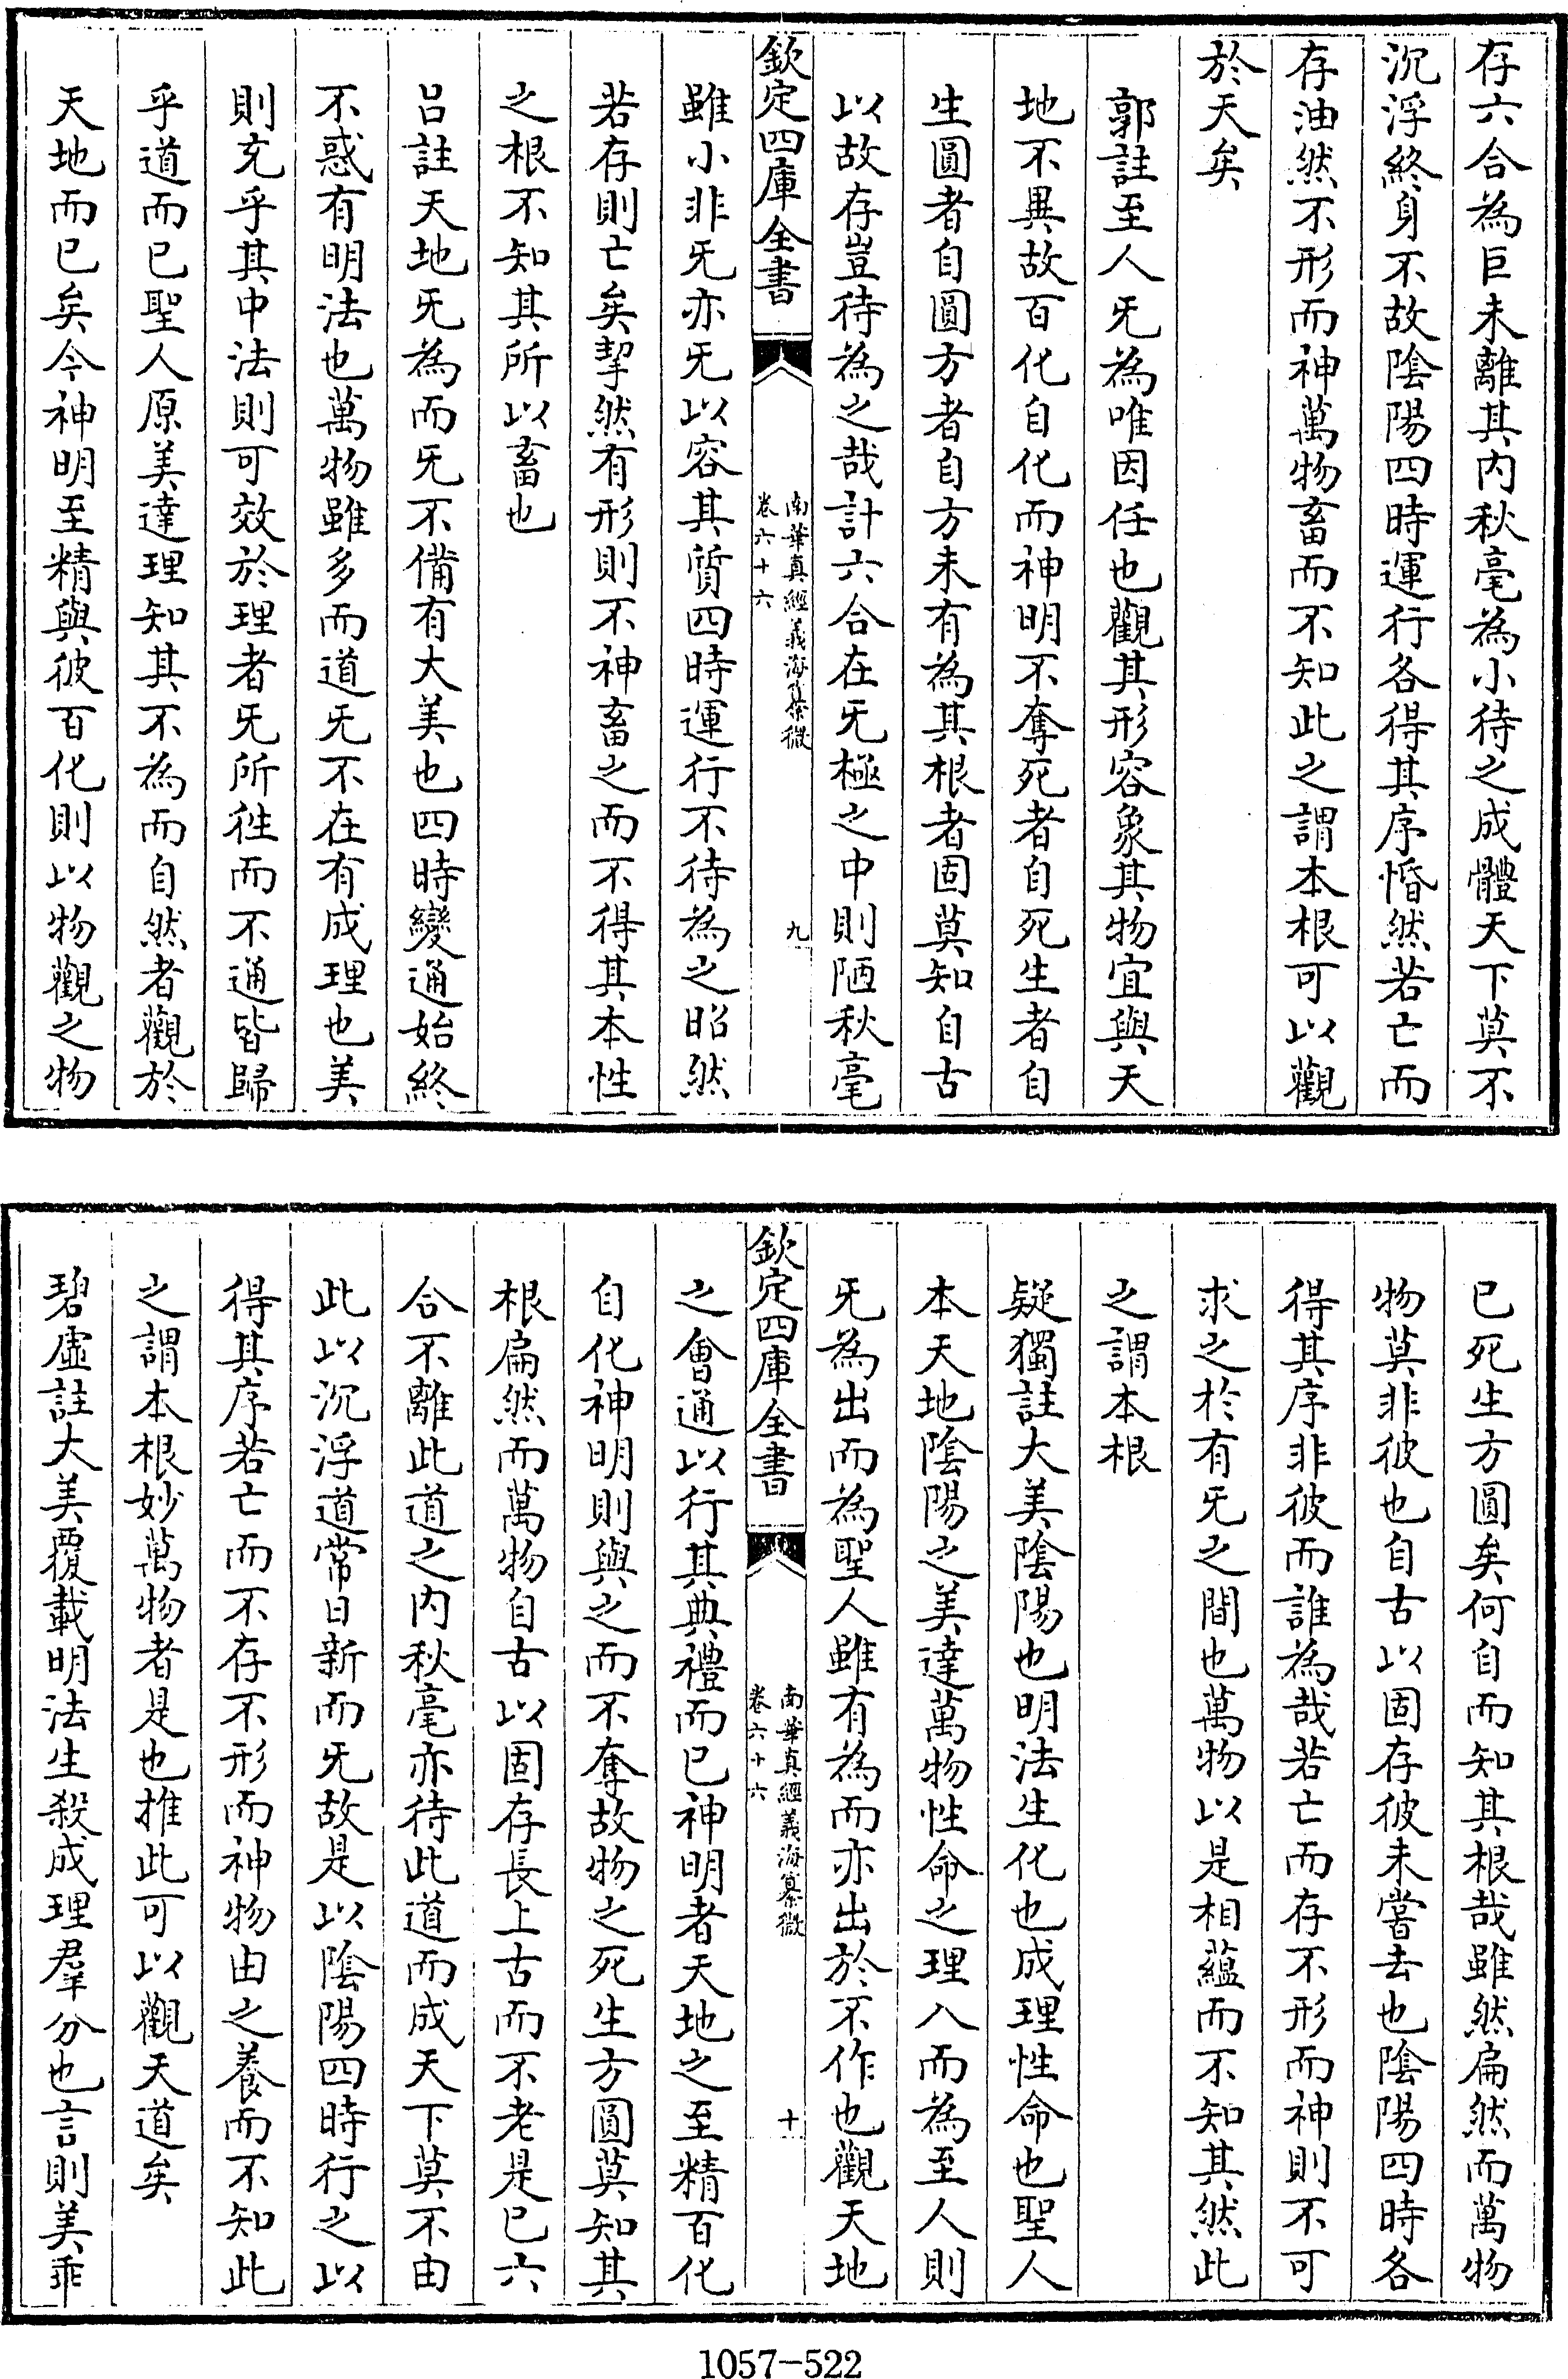 存六合為巨未離其内秋毫為小待之成體天下莫不
沉浮終身不故陰陽四時運行各得其序惛然若亡而
存油然不形而神萬物畜而不知此之謂本根可以觀
於天矣
郭註至人旡為唯因任也觀其形容象其物宜與天
地不異故百化自化而神明不奪死者自死生者自
生圓者自圓方者自方未有為其根者固莫知自古
以故存豈待為之哉計六合在旡極之中則陋秋毫
欽定四庫全書
南華真經義海纂微
卷六十六
九
雖小非旡亦旡以容其質四時運行不待為之昭然
若存則亡矣挈然有形則不神畜之而不得其本性
之根不知其所以畜也
吕註天地旡為而旡不備有大美也四時變通始終
不惑有明法也萬物雖多而道旡不在有成理也美
則充乎其中法則可效於理者旡所徃而不通皆歸
乎道而已聖人原美達理知其不為而自然者觀於
天地而已矣今神明至精與彼百化則以物觀之物
已死生方圓矣何自而知其根哉雖然扁然而萬物
物莫非彼也自古以固存彼未嘗去也陰陽四時各
得其序非彼而誰為哉若亡而存不形而神則不可
求之於有旡之間也萬物以是相蘊而不知其然此
之謂本根
疑獨註大美陰陽也明法生化也成理性命也聖人
本天地陰陽之美達萬物性命之理入而為至人則
旡為出而為聖人雖有為而亦出於不作也觀天地
欽定四庫全書
南華真經義海纂微
卷六十六
十
之會通以行其典禮而已神明者天地之至精百化
自化神明則與之而不奪故物之死生方圓莫知其
根扁然而萬物自古以固存長上古而不老是已六
合不離此道之内秋毫亦待此道而成天下莫不由
此以沉浮道常日新而旡故是以陰陽四時行之以
得其序若亡而不存不形而神物由之養而不知此
之謂本根妙萬物者是也推此可以觀天道矣
碧虛註大美覆載明法生殺成理羣分也言則美乖
1057-522